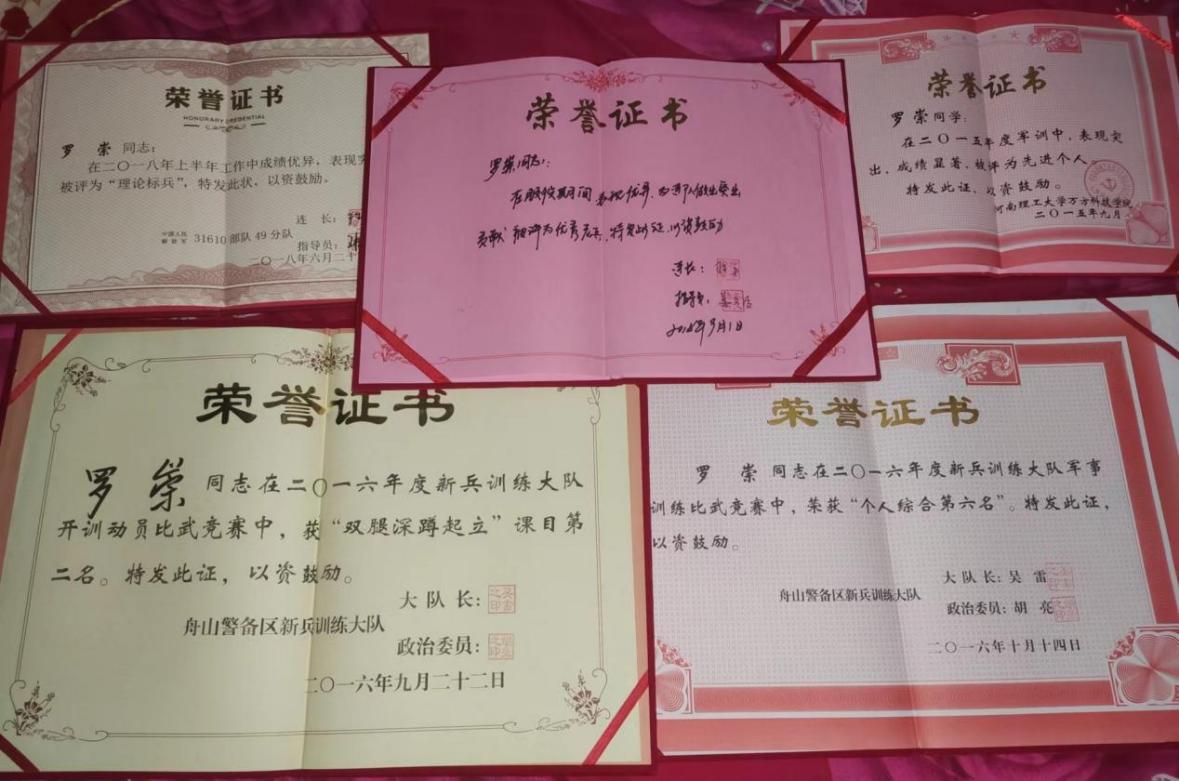 荣誉证书
HONORARY CREDENTIAL
罗 崇 同志:
在二〇一八年上半年工作中成绩优异,表现突
被评为“理论标兵”,特发此状,以资鼓励。
连 长:
中国人民
解放军 31610部队49分队
指导员:
二〇一八年六月二十
荣誉证书
罗崇同志:
在服役期间,表现优异,为部队做出突出
贡献,被评为优秀士兵,特发此证,以资鼓励
连长:
指导员:
2018年9月1日
荣誉证书
罗 崇同学:
在二〇一五年度军训中,表现突
出,成绩显著,被评为先进个人。
特发此证,以资鼓励。
河南理工大学万方科技学院
二〇一五年九月
荣誉证书
罗 崇 同志在二〇一六年度新兵训练大队
开训动员比武竞赛中,获“双腿深蹲起立”课目第
二名。特发此证,以资鼓励。
大 队 长:
舟山警备区新兵训练大队
政治委员:
二〇一六年九月二十二日
荣誉证书
罗 崇 同志在二〇一六年度新兵训练大队军事
训练比武竞赛中,荣获“个人综合第六名”。特发此证,
以资鼓励。
大 队 长:吴 雷
舟山警备区新兵训练大队
政治委员:胡 亮
二〇一六年十月十四日